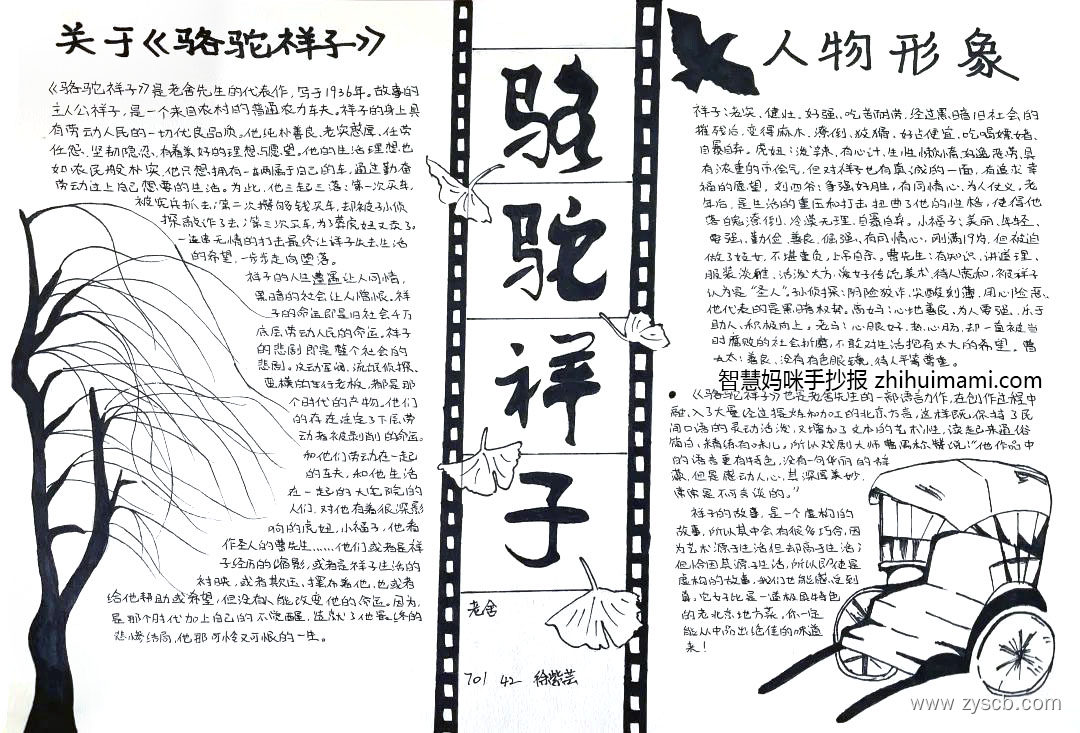 关于《骆驼祥子》
《骆驼祥子》是老舍先生的代表作，写于1936年。故事的
主人公祥子，是一个来自农村的普通人力车夫。祥子的身上具
有劳动人民的一切优良品质。他纯朴善良、老实憨厚、任劳
任怨、坚韧隐忍，有着美好的理想与愿望。他的生活理想也
如农民般朴实，他只想拥有一辆属于自己的车，通过勤奋
劳动过上自己想要的生活。为此，他三起三落：第一次买车，
被宪兵抓去；第二次攒够钱买车，却被孙侦
探敲诈了去；第三次买车，为了葬虎妞又卖了。
一连串无情的打击最终让祥子失去生活
的希望，一步步走向堕落。
祥子的人生遭遇让人同情，
黑暗的社会让人憎恨。祥
子的命运即是旧社会千万
底层劳动人民的命运，祥子
的悲剧即是整个社会的
悲剧。反动军阀、流氓侦探、
蛮横的车行老板，都是那
个时代的产物。他们
的存在注定了下层劳
动者被剥削的命运。
和他们劳动在一起
的车夫，和他生活
在一起的大宅院的
人们，对他有着很深影
响的虎妞，小福子，他看
作圣人的曹先生……他们或者是祥
子经历的缩影，或者是祥子生活的
衬映，或者欺压、摆布着他，也或者
给他帮助或希望，但没有人能改变他的命运。因为，
是那个时代加上自己的不觉醒，造就了他最终的
悲惨结局，他那可怜又可恨的一生。
骆
驼
祥
子
老舍
701 42 徐紫芸
人物形象
祥子：老实、健壮、好强、吃苦而劳，经过黑暗旧社会的
摧残后，变得麻木、潦倒、狡猾、好占便宜、吃喝嫖赌、
自暴自弃。虎妞：泼辣、有心计、生性懒惰、凶恶、具
有浓重的市侩气，但对祥子也有真诚的一面，有追求幸
福的愿望，刘四爷：争强好胜，有同情心，为人仗义，老
年后，是生活的重压和打击扭曲了他的性格，使得他
落魄潦倒、冷漠无理、自暴自弃。小福子：美丽、年轻、
要强、勤俭、善良、倔强、有同情心，刚满19岁，但被迫
做了妓女，不堪重负，上吊自杀。曹先生：有知识、讲道理、
服装淡雅、活泼大方、爱好传统美术、待人宽和，被祥子
认为是“圣人”。孙侦探：阴险狡诈、尖酸刻薄、用心险恶、
他代表的是黑暗权势。高妈：心地善良、为人要强、乐于
助人、积极向上。老马：心眼好，热心肠，却一直被当
时腐败的社会折磨，不敢对生活抱有太大的希望。曹
太太：善良，没有有色眼镜，待人平等尊重。
智慧妈咪手抄报 zhihuimami.com
《骆驼祥子》也是老舍先生的一部语言力作，在创作过程中
融入了大量经过提炼和加工的北京方言，这样既保持了民
间口语的灵动活泼，又增加了文本的艺术性，读起来通俗
简白、精练有味儿，所以戏剧大师曹禺称赞说：“他作品中
的语言更有特色，没有一句华丽的辞
藻，但是感动人心，其深厚美妙，
常常是不可言谈的。”
祥子的故事，是一个虚构的
故事，所以其中会有很多巧合，因
为艺术源于生活但却高于生活；
但恰因其源于生活，所以即使是
虚构的故事，我们也能感受到
真，它好比是一道极具特色
的老北京地方菜，你一定
能从中品出绝佳的味道
来！
www.zyscb.com